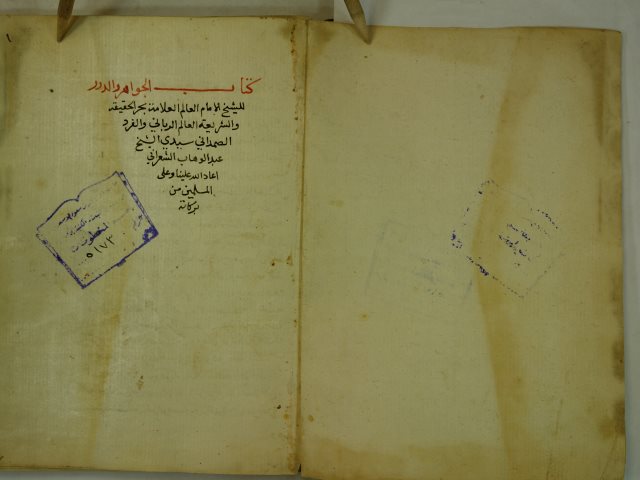 كتاب الجواهر والدرر
للشيخ الامام العالم العلامة بحر الحقيقه
والشريعة العالم الرباني والفرد
الصمداني سيدي الشيخ
عبد الوهاب الشعراني
اعاد الله علينا وعلى
المسلمين من
بركاته
١
٥١٧٣